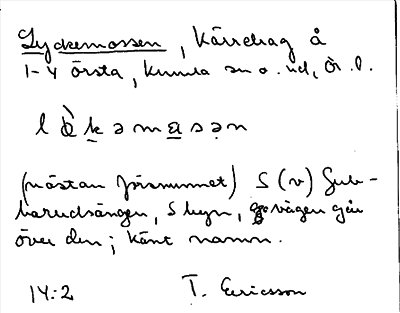 Lyckemossen, Kärrdrag å
1-4 Örsta, Kumla sn o. hd, Ör. l.
lὰk̲əma̲sən
(nästan försvunnet) S (v) Gub-
S byn, vägen går
över den; känt namn.
14:2 T. Ericsson